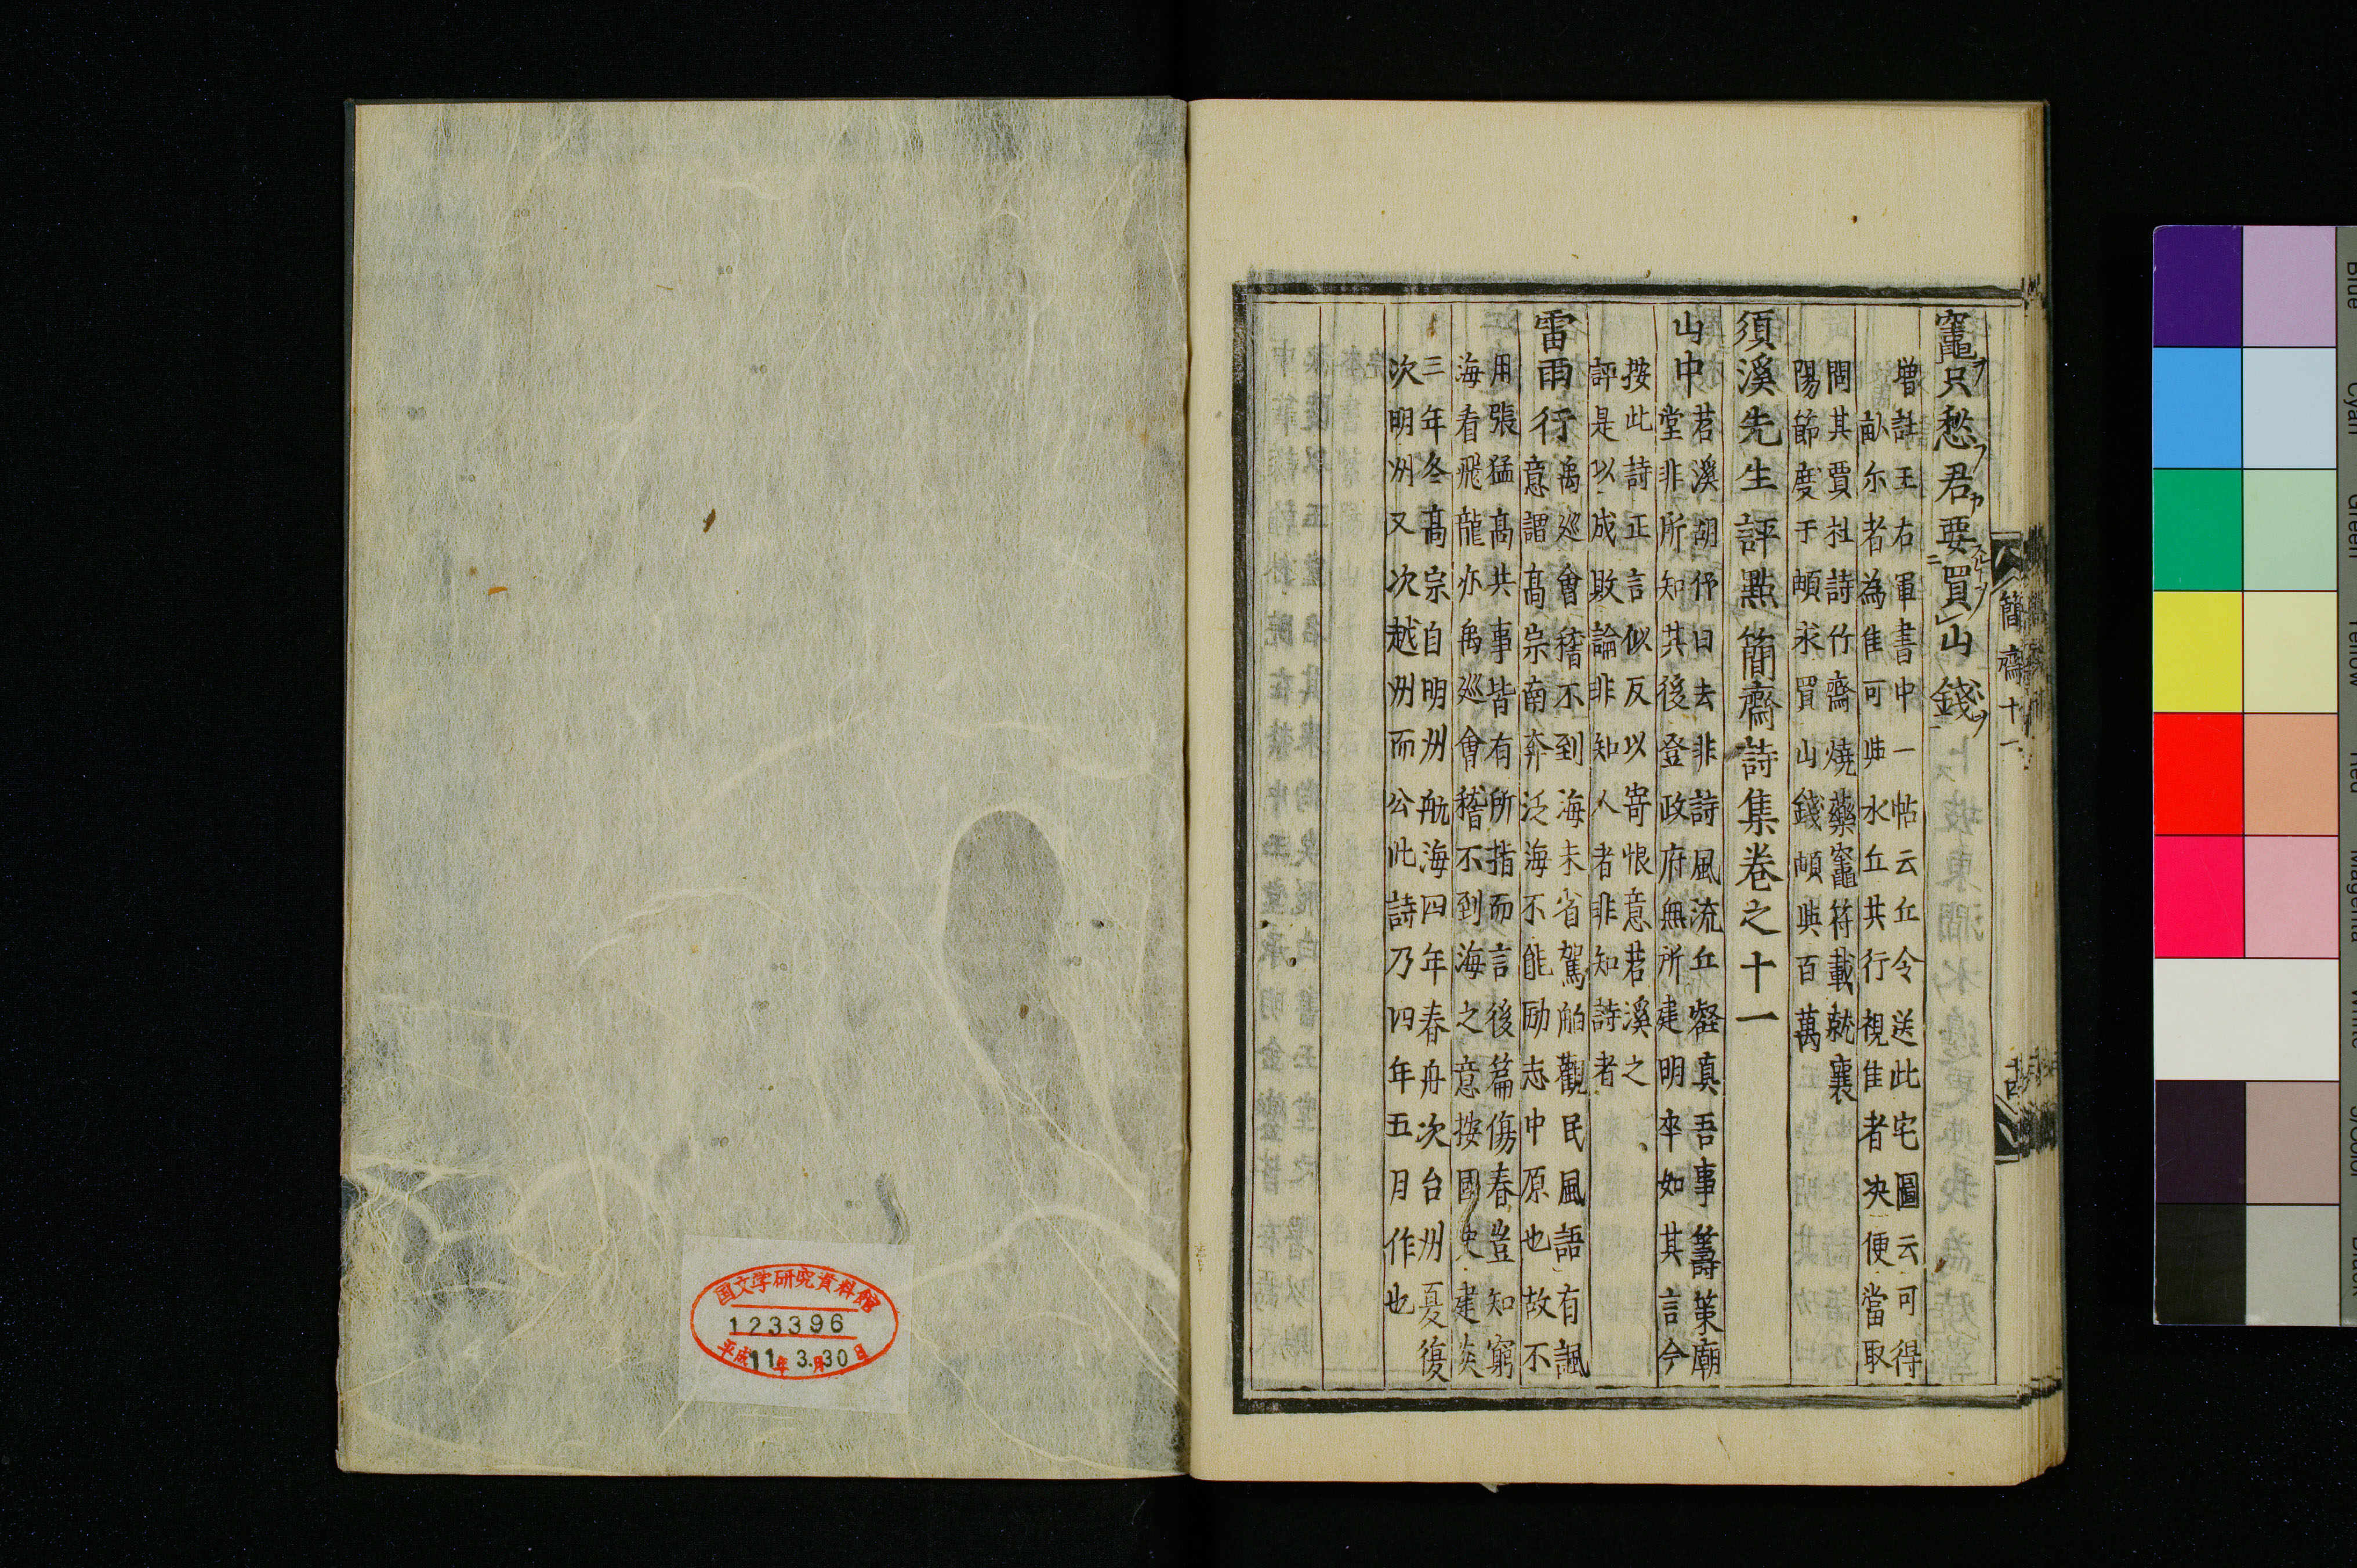 竈只愁君要買山錢
増註王右軍書中一帖云丘令送此宅圖云可得
畝尓者為隹可與水丘共行視隹者决便當取
問其賈杜詩竹齋燒藥竈符載就襄
陽節度于頔求買山錢頔與百萬
須溪先生評點簡齋詩集卷之十一
山中
苕溪胡仔曰去非詩風流丘壑真吾事籌策廟
堂非所知其後登政府無所建明卒如其言今
按此詩正言似反以寄恨意苕溪之
評是以成敗論非知人者非知詩者
雷雨行
禹巡會稽不到海未省駕舶觀民風語有諷
意謂髙宗南奔泛海不能励志中原也故不
用張猛髙共事皆有所指而言後篇傷春豈知窮
海看飛龍亦禹巡會稽不到海之意按國史建炎
三年冬髙宗自明州航海四年春舟次台州憂復
次明州又次越州而公此詩乃四年五月作也
簡齋十一
十四
国文学研究資料館
123396
平成11年3月30日
Blue
Cyan
Green
Yellow
Red
Magenta
White
3/Color
Black